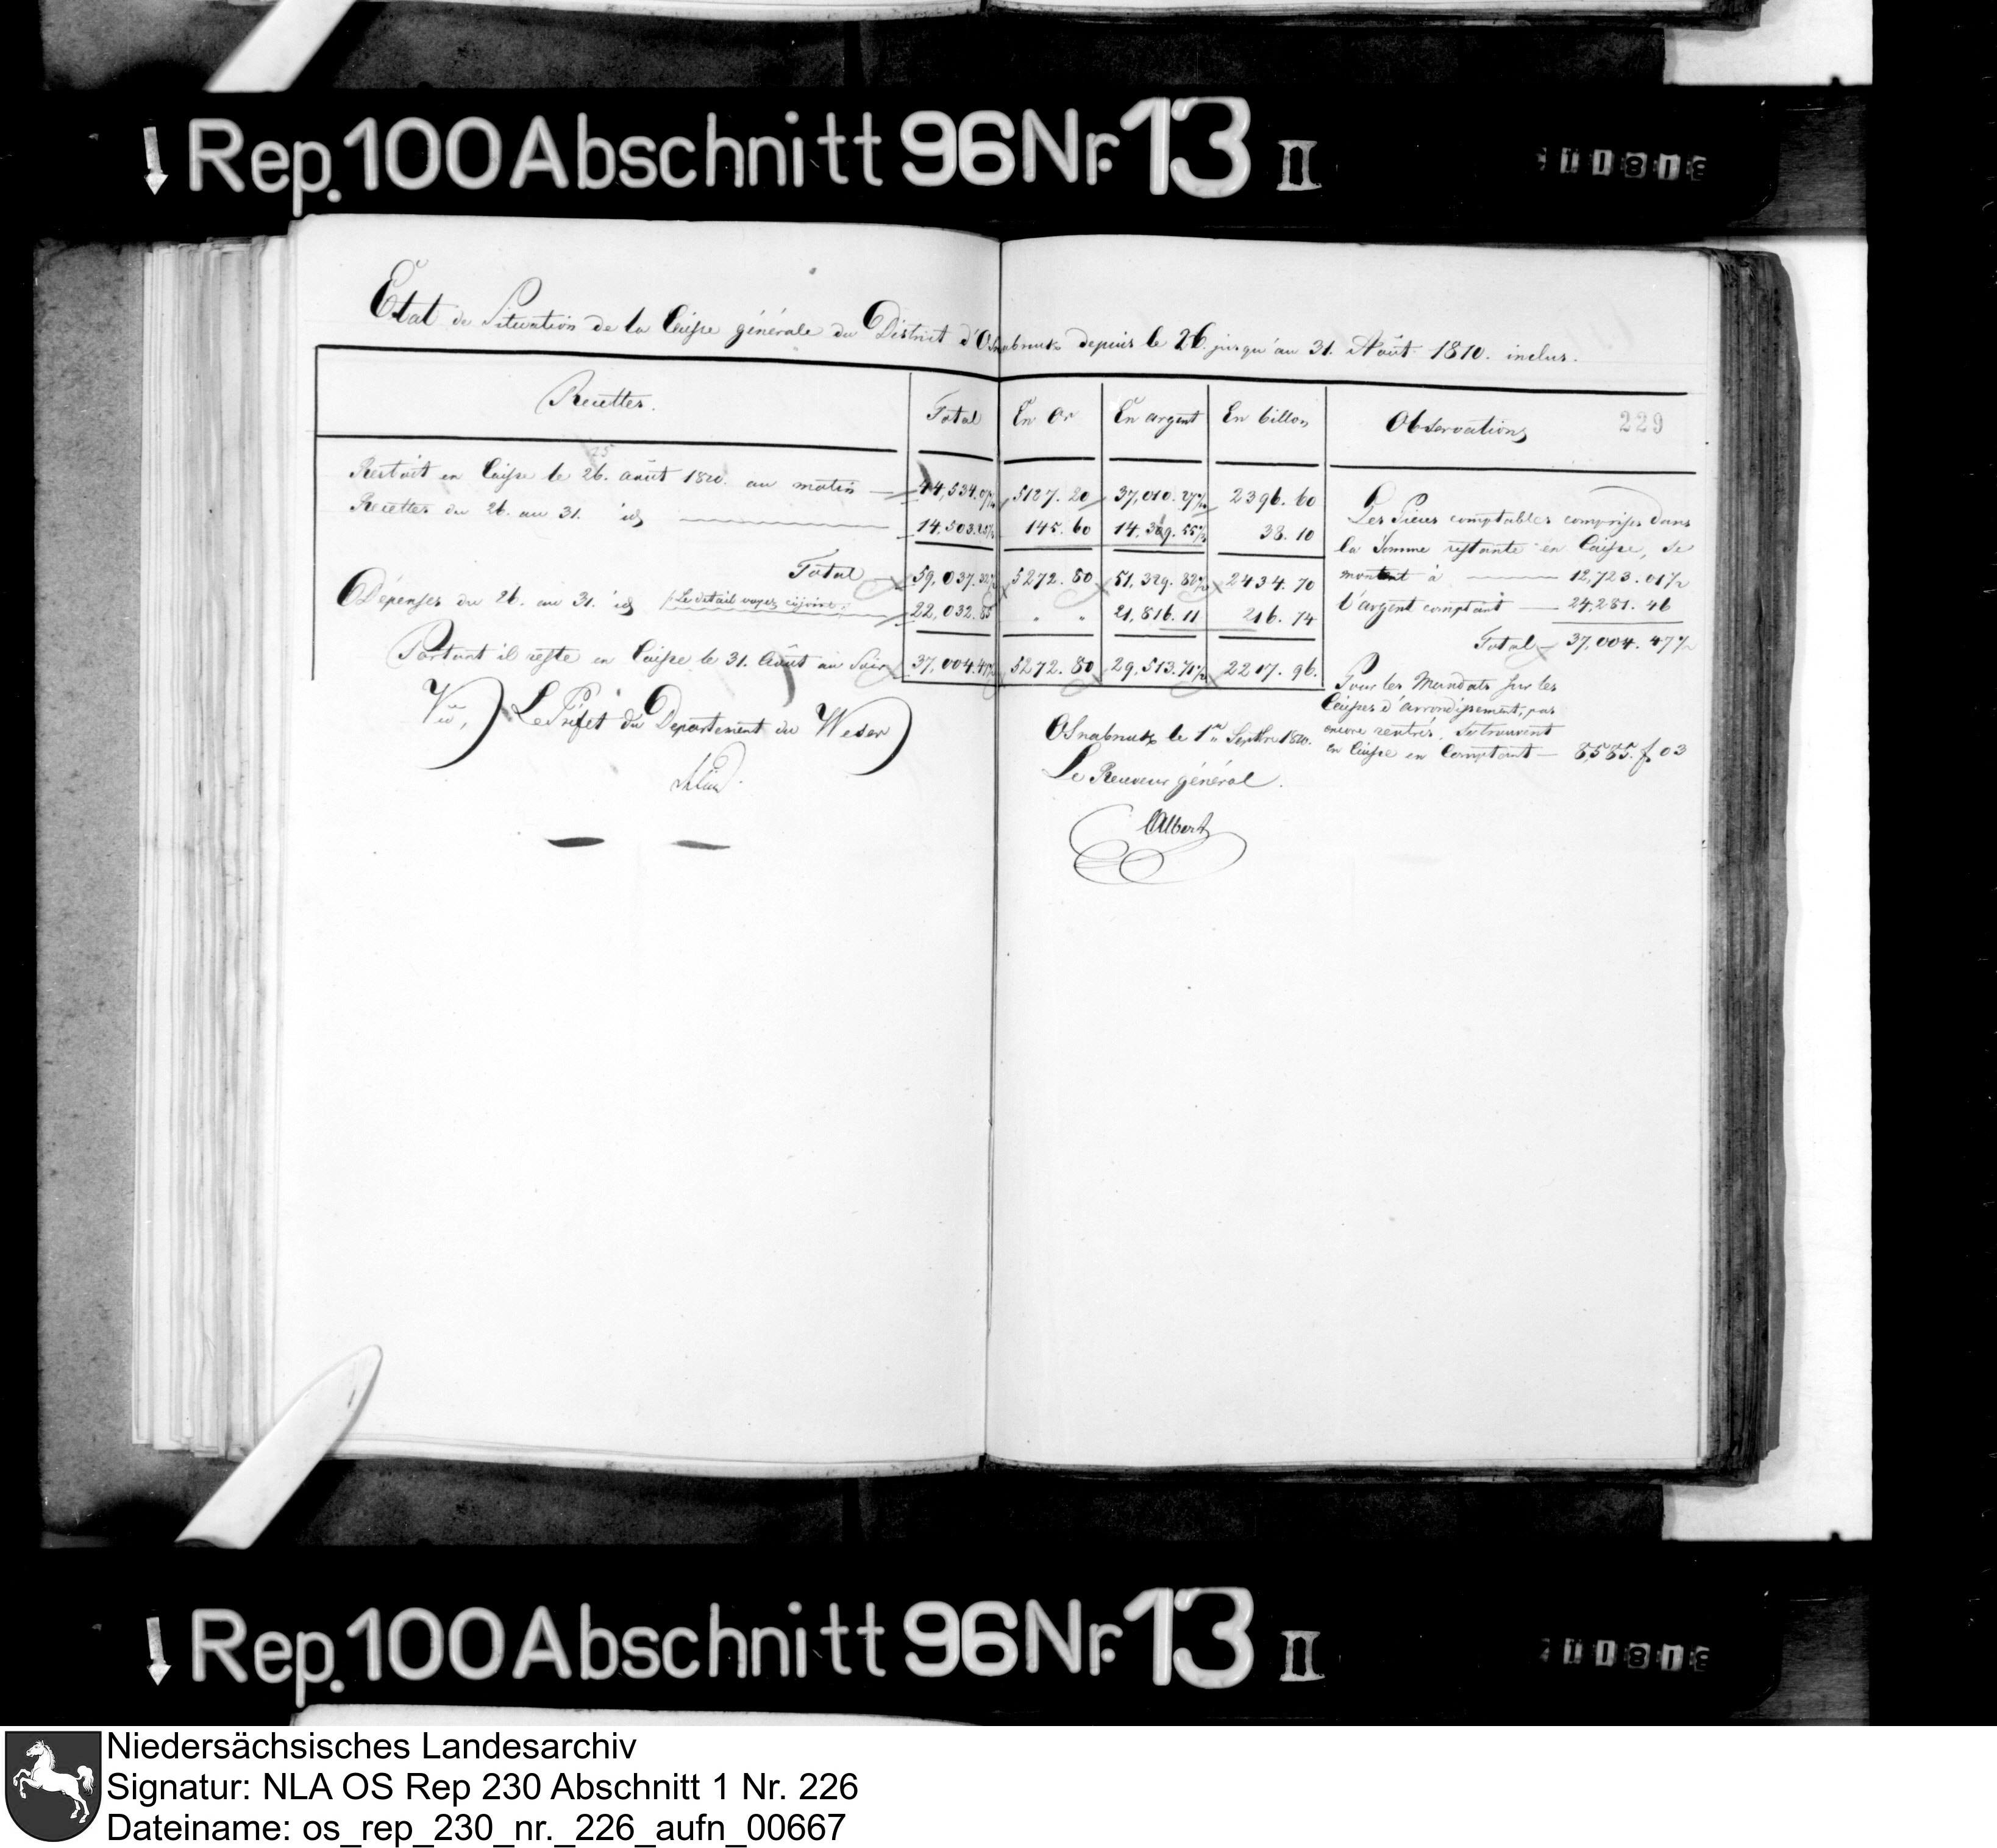 Rep. 100 Abschnitt 96 Nr. 13 II
Etat de Situation de la Caisse générale du District d'Osnabruck depuis le 26 jusqu'au 31. Août 1810. inclus.
Recettes. Total En Or En argent En billon Observations 229
25
Restait en Caisse le 26. août 1810. au matin 44,534.07½ 5127. 20 37,010. 27½ 2396. 60
Recettes du 26. au 31. id 14,503.25½ 145. 60 14,319. 55½ 38. 10
Total 59,037.32½ 5272. 80 51,329. 82½ 2434. 70
Dépenses du 26. au 31. id /:Le détail voyez cijoint:/ 22,032.85 " " 21,816. 11 216. 74
Partant il reste en Caisse le 31. Août au Soir 37,004.47½ 5272. 80 29,513.71½ 2217. 96.
Les Pièces comptables comprises dans
la Somme restante en Caisse, se
montent à 12,723. 01½
l'argent comptant 24,281. 46
Total 37,004. 47½
Pour les Mandats sur les
Caisses d'arrondissement, pas
encore rentrés, se trouvent
en Caisse en Comptant 8,585. f 03
Vu, Le Préfet du Departement du Weser
Osnabruck le 1er Septbre 1810.
Le Receveur général.
Albert
Rep. 100 Abschnitt 96 Nr. 13 II
Niedersächsisches Landesarchiv
Signatur: NLA OS Rep 230 Abschnitt 1 Nr. 226
Dateiname: os_rep_230_nr._226_aufn_00667